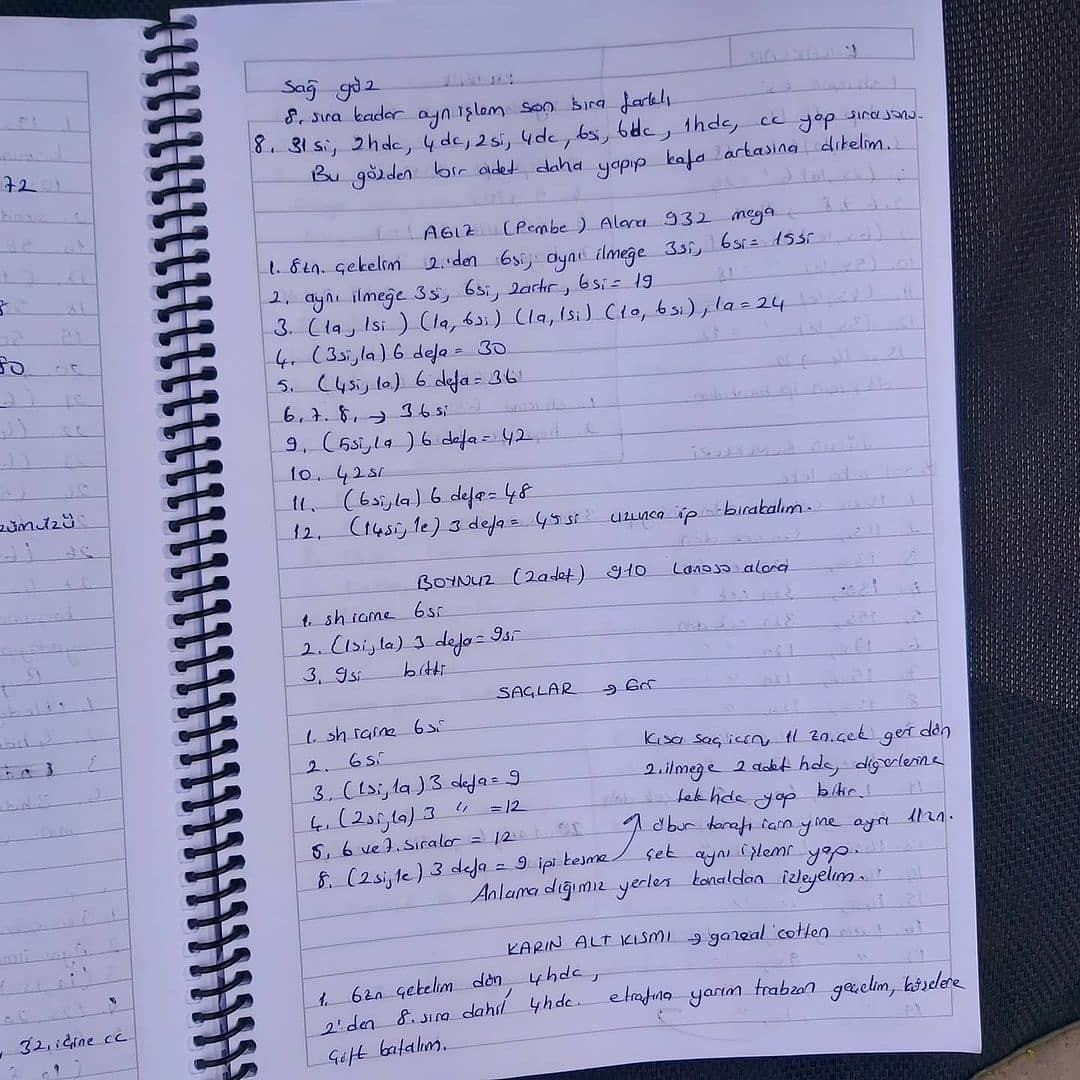 72
80
zümüzü
32, iğine cc
Sağ göz
8. sıra kadar aynı işlem son sıra farklı
8. 31 si, 2hdc, 4dc, 2si, 4dc, 6si, 6dc, 1hdc, cc yap sıra sonu.
Bu gözden bir adet daha yapıp kafa arkasına dikelim.
AĞIZ (Pembe) Alara 932 mega
1. 8zn. çekelim 2.'den 6si, aynı ilmeğe 3si, 6si = 15si
2. aynı ilmeğe 3si, 6si, 2artır, 6si = 19
3. (1a, 1si) (1a, 6si) (1a, 1si) (1a, 6si), 1a = 24
4. (3si, 1a) 6 defa = 30
5. (4si, 1a) 6 defa = 36
6. 7. 8. → 36 si
9. (5si, 1a) 6 defa = 42
10. 42si
11. (6si, 1a) 6 defa = 48
12. (14si, 1e) 3 defa = 45si uzunca ip bırakalım.
BOYNUZ (2adet) 910 Lanoso alara
1. sh içine 6si
2. (1si, 1a) 3 defa = 9si
3. 9si bitti
SAÇLAR → Gri
1. sh içine 6si
2. 6si
3. (1si, 1a) 3 defa = 9
4. (2si, 1a) 3 " = 12
5, 6 ve 7. sıralar = 12
8. (2si, 1e) 3 defa = 9 ipi kesme
Kısa saç için 11 zn. çek geri dön
2. ilmeğe 2 adet hdc, diğerlerine
tek hdc yap bitir.
öbür tarafı için yine aynı 11zn.
çek aynı işlemi yap.
Anlamadığımız yerleri kanaldan izleyelim.
KARIN ALT KISMI → gazzal cotton
1. 6zn çekelim dön, 4hdc,
2'den 8. sıra dahil 4hdc. etrafına yarım trabzan geçelim, köşelere
çift batalım.